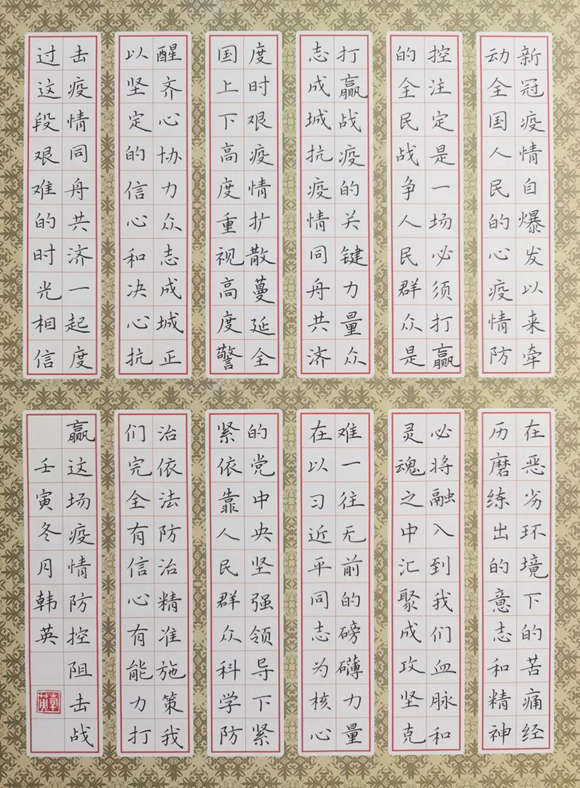 新冠疫情自爆发以来牵
动全国人民的心疫情防
控注定是一场必须打赢
的全民战争人民群众是
打赢战疫的关键力量众
志成城抗疫情同舟共济
度时艰疫情扩散蔓延全
国上下高度重视高度警
醒齐心协力众志成城正
以坚定的信心和决心抗
击疫情同舟共济一起度
过这段艰难的时光相信
在恶劣环境下的苦痛经
历磨练出的意志和精神
必将融入到我们血脉和
灵魂之中汇聚成攻坚克
难一往无前的磅礴力量
在以习近平同志为核心
的党中央坚强领导下紧
紧依靠人民群众科学防
治依法防治精准施策我
们完全有信心有能力打
赢这场疫情防控阻击战
壬寅冬月韩英